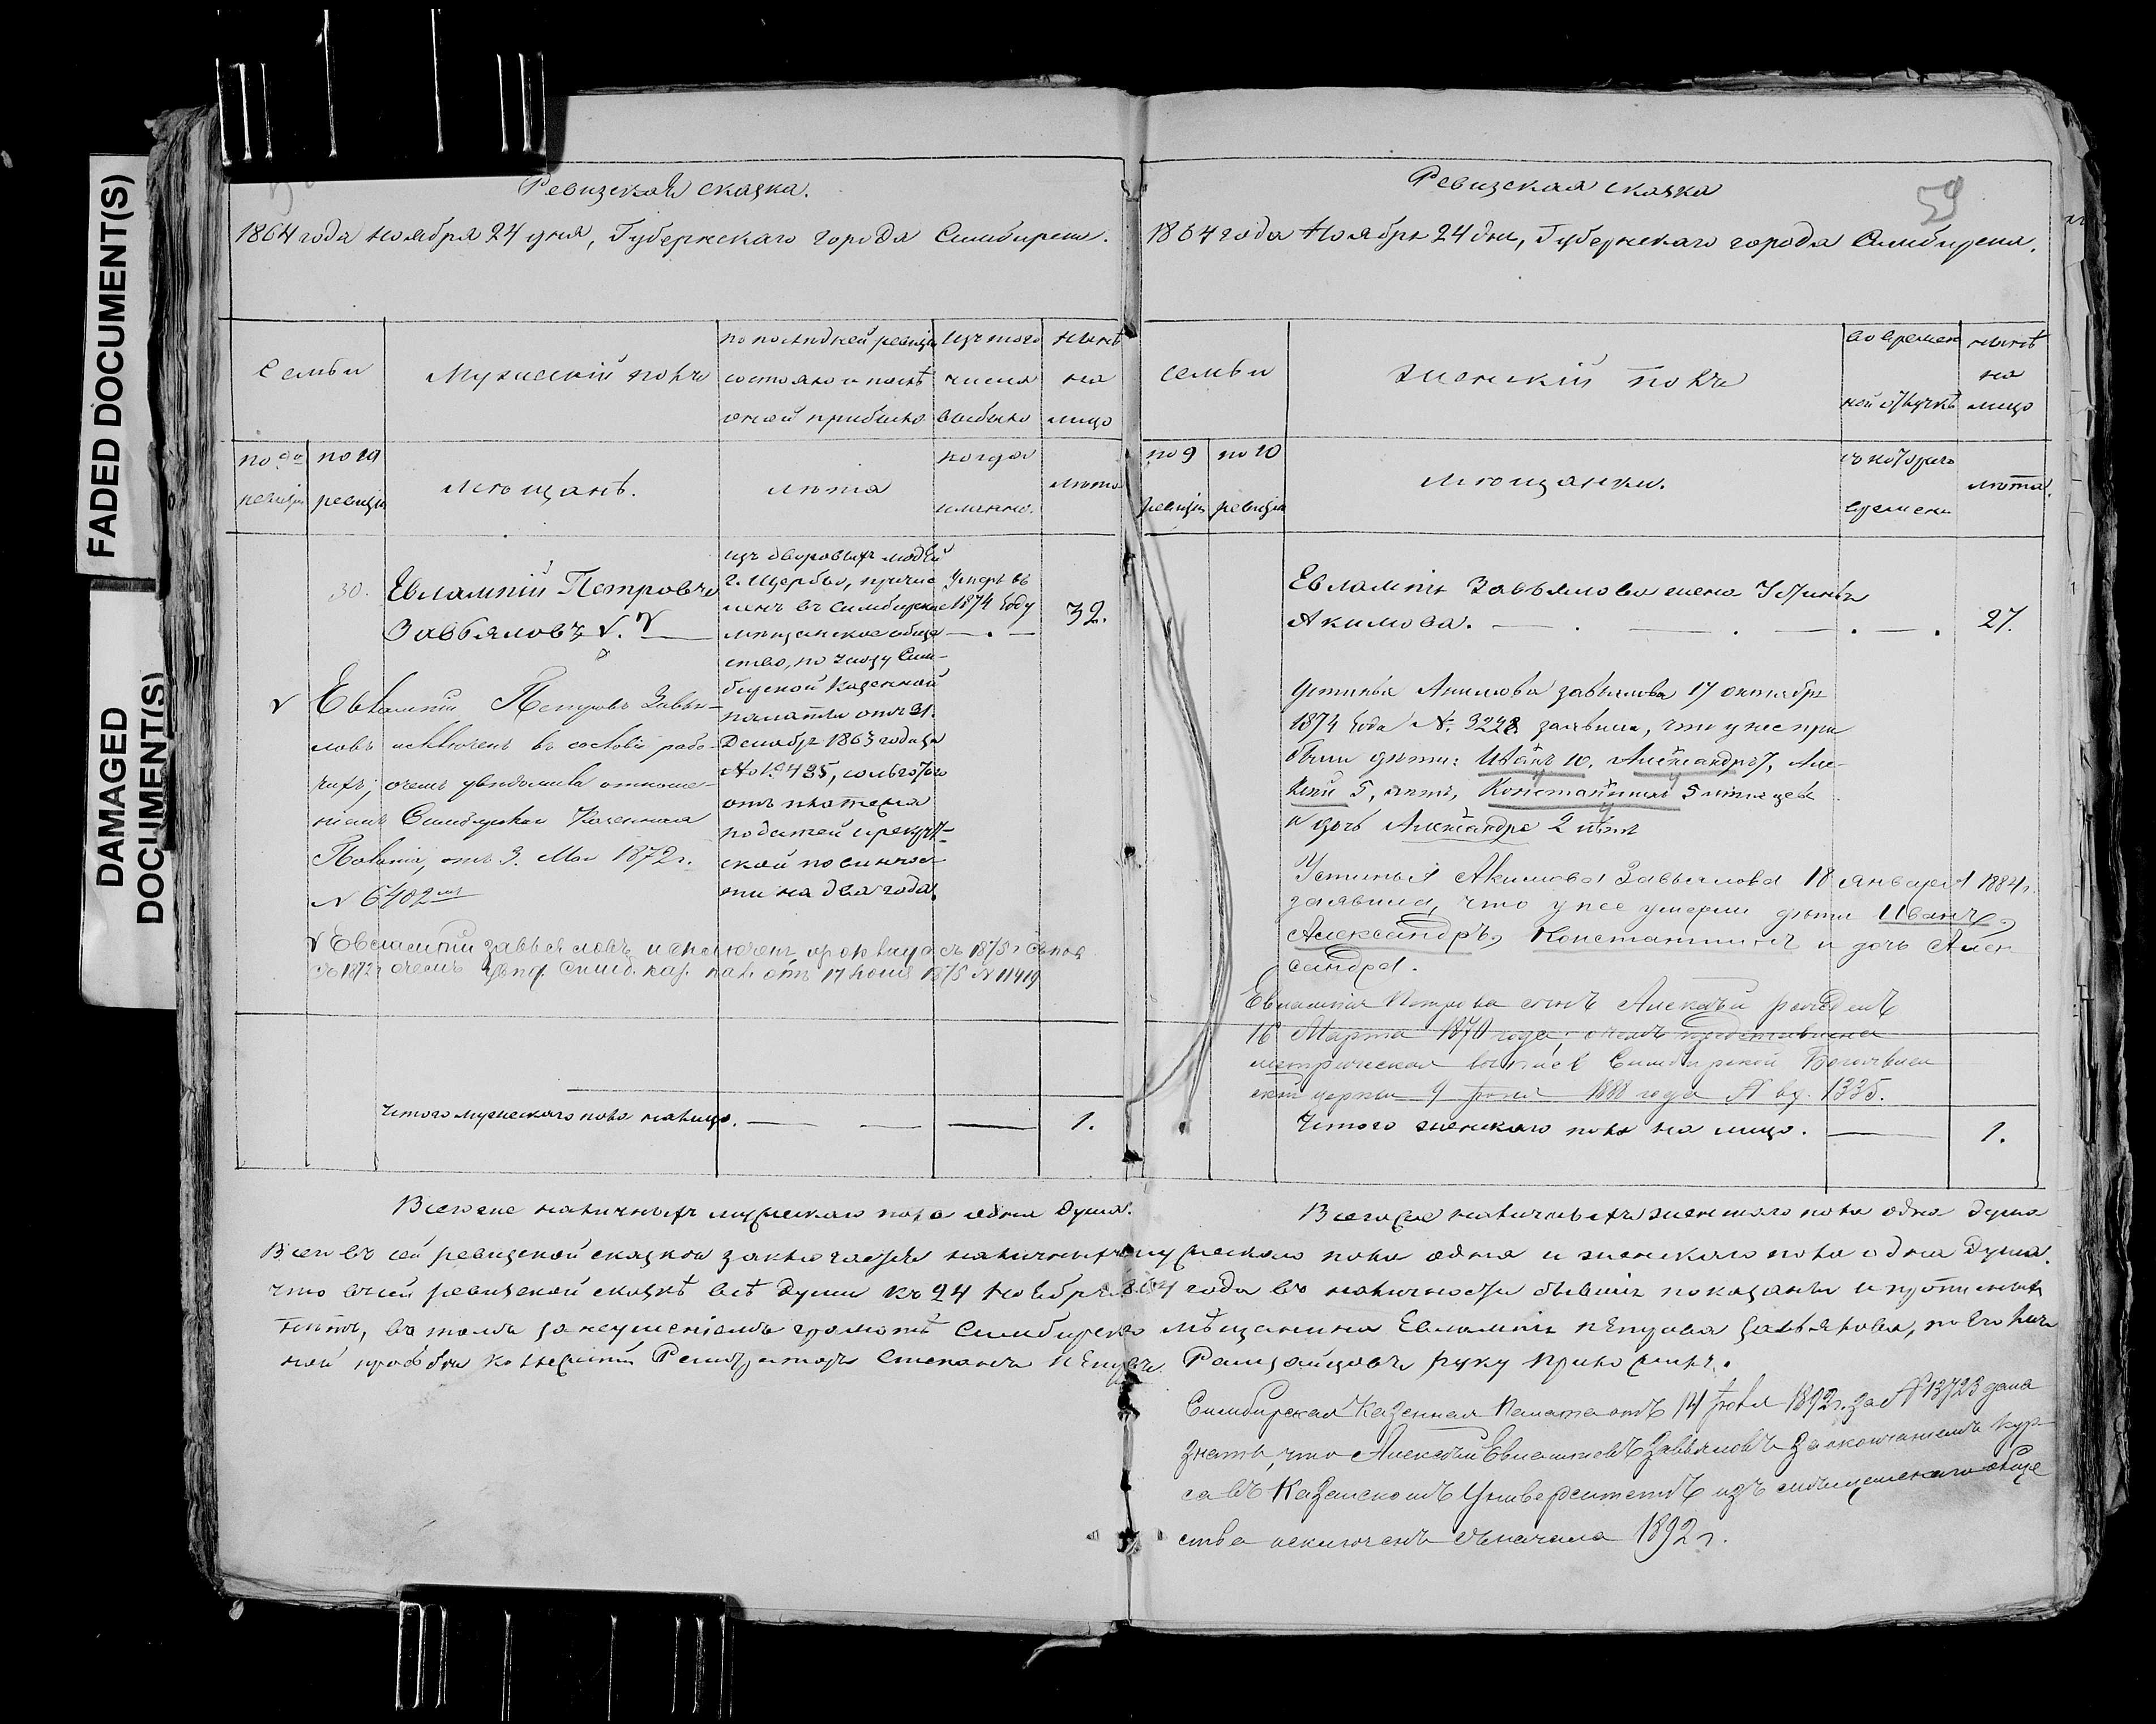 FADED DOCUMENT(S)
DAMAGED
DOCUMENT(S)
Ревизская сказка.
1864 года ноября 24 дня, Губернскаго города Симбирска.
Семьи
Мужескій полъ
по последней ревизіи состояло и после оной прибыло
изъ того числа выбыло
ныне на лицо
по 9й ревизіи
по 10 ревизіи
мещанъ.
лета
когда именно.
лета
30.
Евлампій Петровъ
Завьяловъ
изъ дворовыхъ людей
г. Щербо, причис
ленъ въ Симбирское
мещанское обще
ство, по указу Сим-
бирской Казенной
палаты отъ 31.
Декабря 1863 года за
№ 19435, со льготою
отъ платежа
податей и рекрут-
ской повиннос
ти на два года.
Умеръ въ
1874 году
32.
Евлампій Петровъ Завья-
ловъ исключенъ въ сословіе рабо-
чихъ; о чемъ уведомила отноше-
ніемъ Симбирская Казенная
Палата, отъ 3. Мая 1872 г.
№ 6402
Евлампій Завьяловъ исключенъ
съ 1872 г. о чемъ Симб. каз. пал. отъ 17 Іюня 1875 № 11419
Итого мужескаго пола налицо.
1.
Всего же наличныхъ мужескаго пола одна душа.
Ревизская сказка
59
1864 года Ноября 24 дня, Губернскаго города Симбирска.
семьи
женскій полъ
во времен
ной отлучке
ныне
на
лицо
по 9
ревизіи
по 10
ревизіи
мещанки.
съ котораго
времени
лета.
Евлампія Завьялова жена Устинья
Акимова.
27.
Устинья Акимова Завьялова 17 октября
1874 года № 3228 заявила, что у нее при
были дети: Иванъ 10. Александръ 7, Але-
ксей 5, летъ, Константинъ 5 месяцевъ
и дочь Александра 2 летъ
Устинья Акимова Завьялова 18 января 1884 г.
заявила, что у нее умерли дети Иванъ,
Александръ, Константинъ и дочь Алек
сандра.
Евлампія Петрова сынъ Алексей рожденъ
16 Марта 1870 года; о чемъ представлена
метрическая выпись Симбирской Богоявлен
ской церкви 9 Іюня 1888 года № вх. 1335.
Итого женскаго пола на лицо.
1.
Всего же наличныхъ женскаго пола одна душа
Всего въ сей ревизской сказке заключается наличныхъ мужескаго пола одна и женскаго пола одна душа.
что въ сей ревизской сказке все души къ 24 Ноября 1864 года въ наличности бывшія показаны и прописныхъ
нетъ, въ томъ за неуменіемъ грамоте Симбирскаго мещанина Евлампія Петрова Завьялова, по его лич
ной прозьбе Коллежскій Регистраторъ Степанъ Петровъ руку приложилъ.
Симбирская Казенная Палата отъ 14 Іюля 1892 г. за № 13723 дала
знать, что Алексей Евлампіевъ Завьяловъ за окончаніемъ кур
са въ Казанскомъ Университете изъ мещанскаго обще
ства исключенъ съ начала 1892 г.